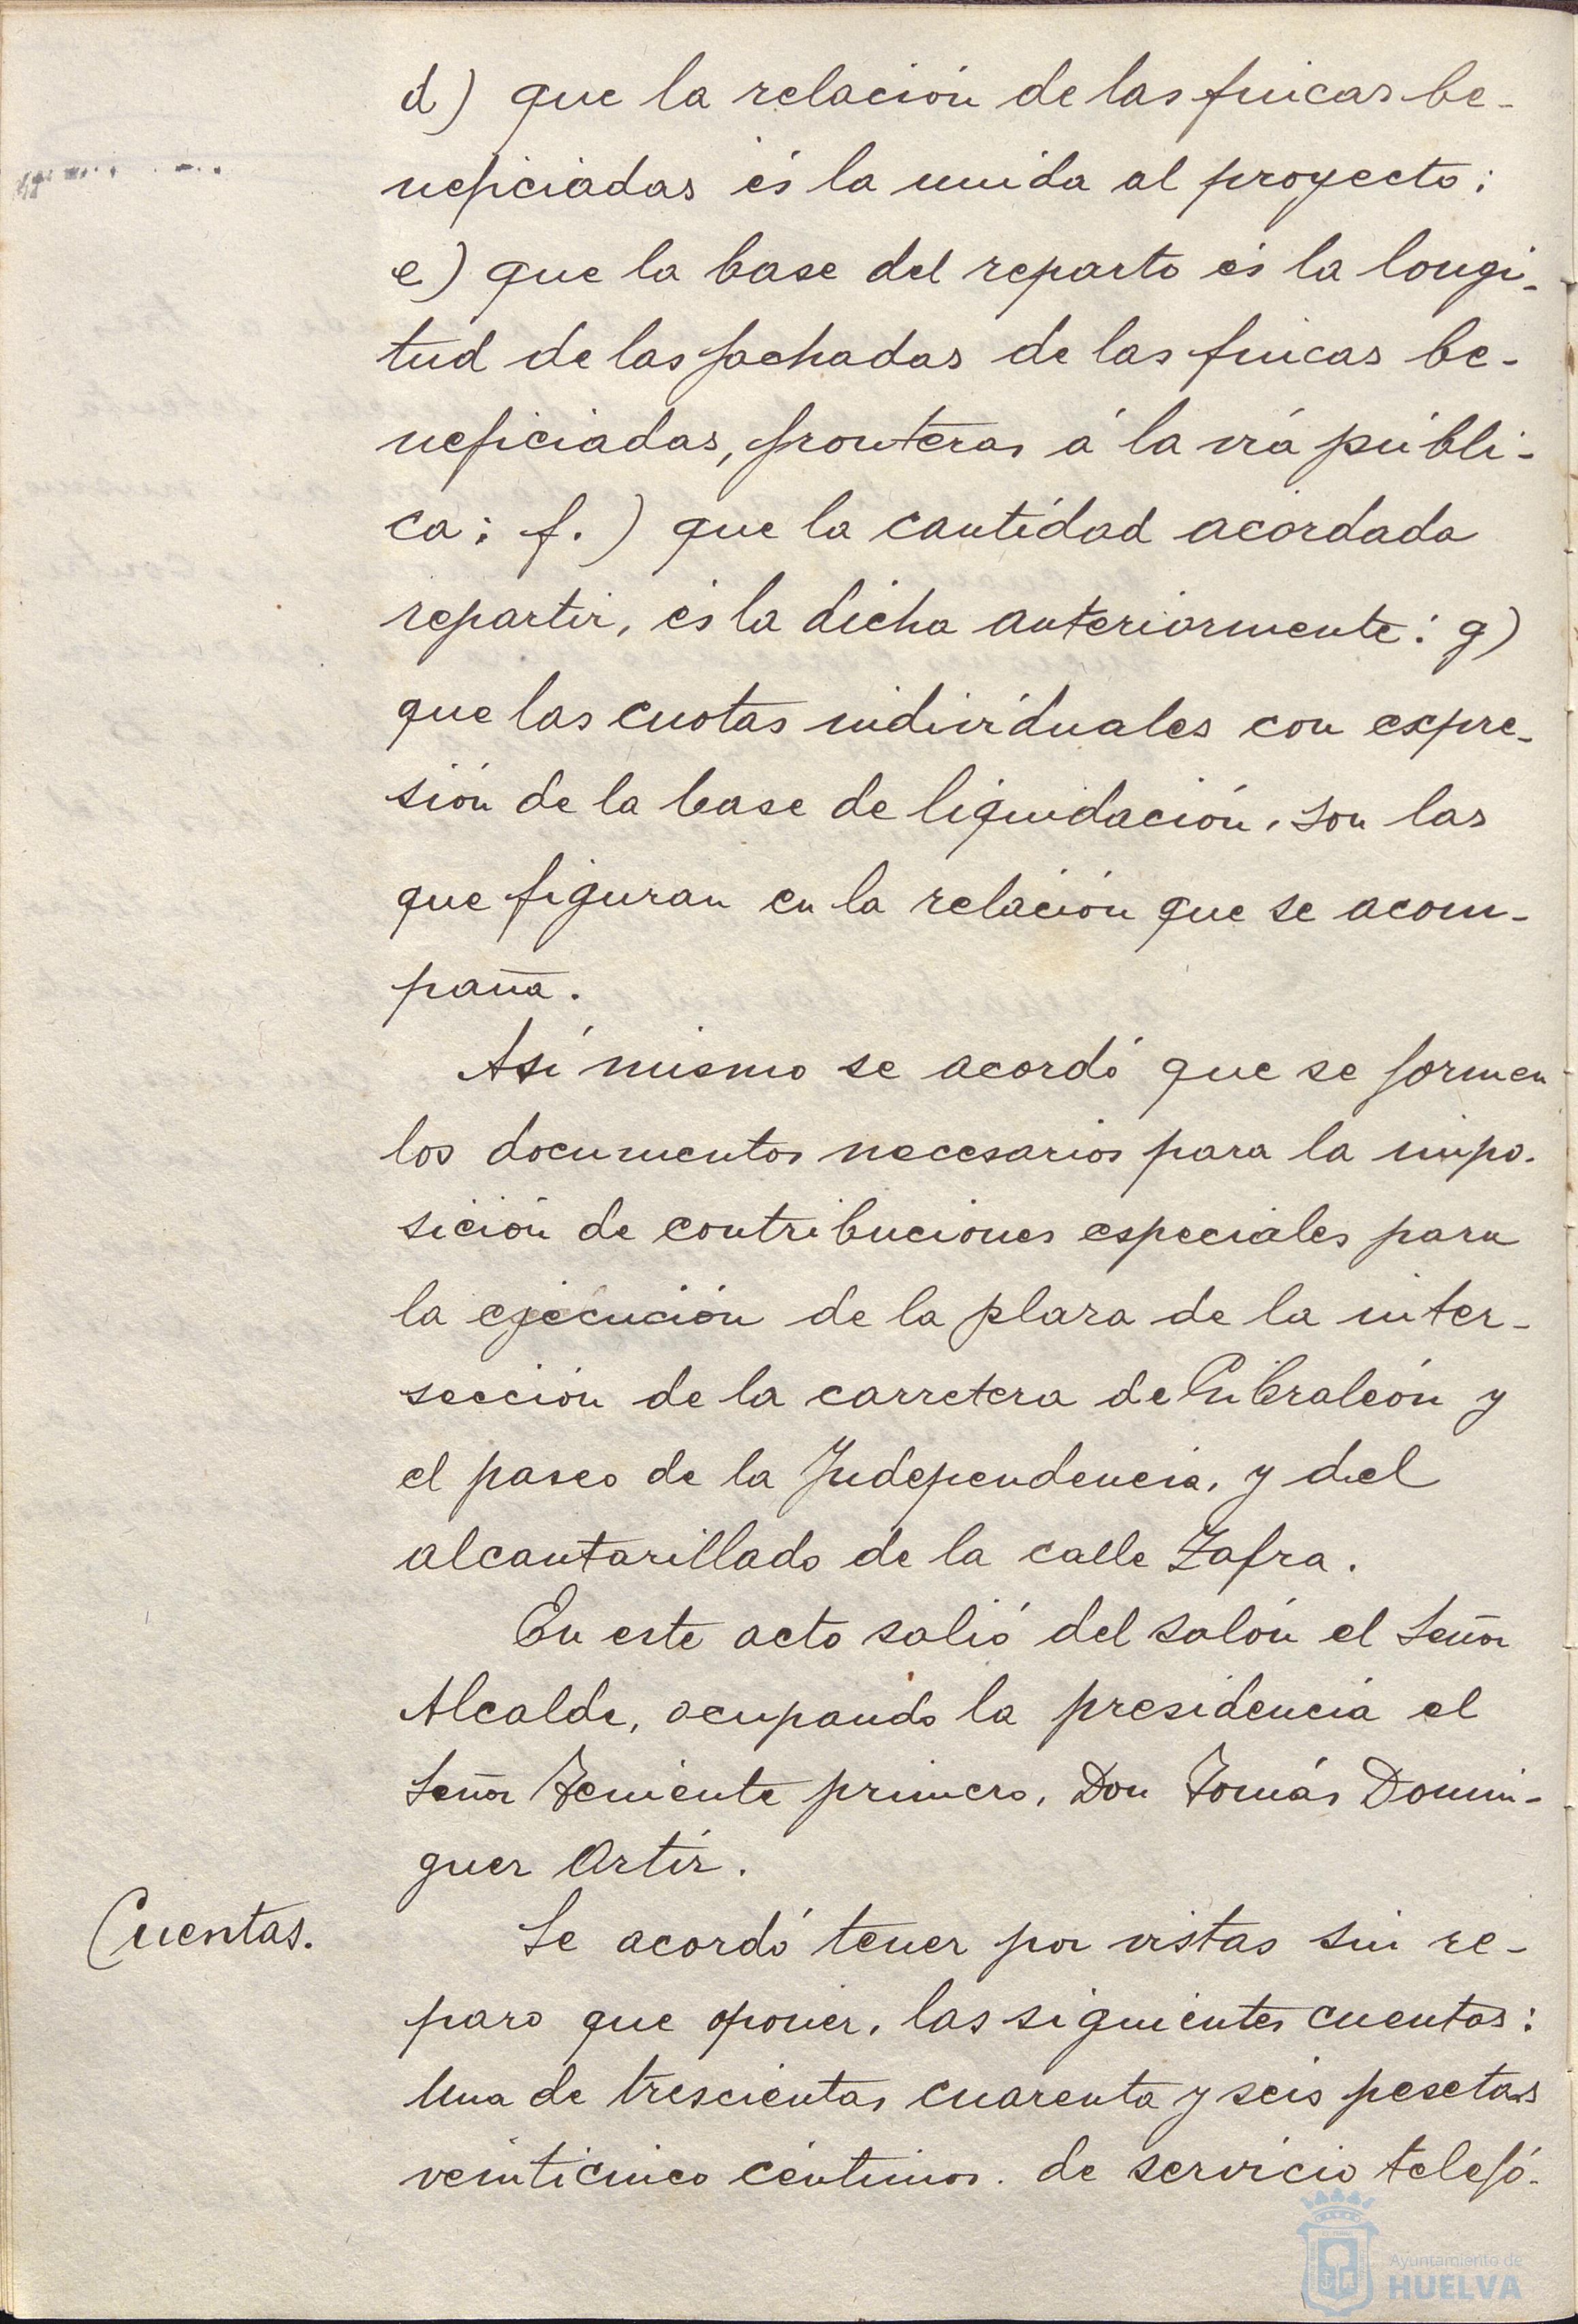 d) que la relación de las fincas be-
neficiadas és la unida al proyecto;
e) que la base del reparto és la longi-
tud de las fachadas de las fincas be-
neficiadas, fronteras á la vía públi-
ca; f.) que la cantidad acordada
repartir, és la dicha anteriormente: g)
que las cuotas individuales con expre-
sión de la base de liquidación, son las
que figuran en la relación que se acom-
paña.
Así mismo se acordó que se formen
los documentos necesarios para la impo-
sición de contribuciones especiales para
la ejecución de la plaza de la inter-
sección de la carretera de Gibraleón y
el paseo de la Independencia, y del
alcantarillado de la calle Zafra.
En este acto salió del salón el Señor
Alcalde, ocupando la presidencia el
Señor Teniente primero, Don Tomás Domin-
guez Ortiz.
Cuentas. Se acordó tener por vistas sin re-
paro que oponer, las siguientes cuentas:
Una de trescientas cuarenta y seis pesetas
veinticinco céntimos. de servicio telefó-
Ayuntamiento de
HUELVA